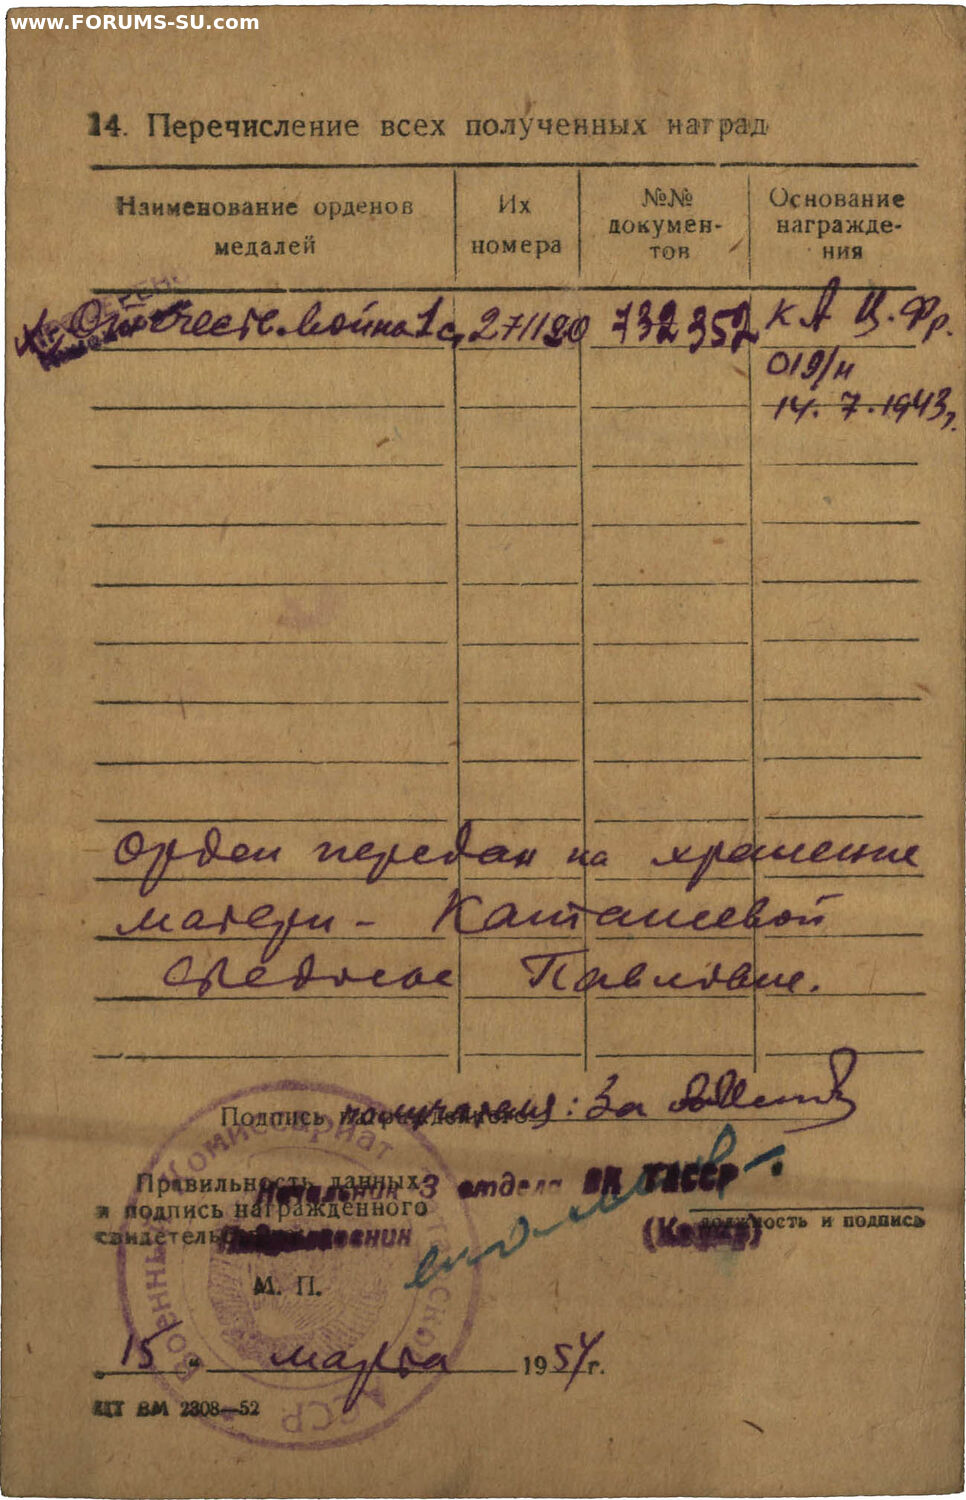 www.FORUMS-SU.com
14. Перечисление всех полученных наград
Наименование орденов медалей
Их номера
№№ докумен-
тов
Основание
награжде-
ния
Отечеств. война 1 с. 271120 732352 К А Ц. Фр.
019/н
14. 7. 1943 г.
Орден передан на хранение
матери - Капташевой
Павловне.
Подпись награжденного получателя: За
Правильность данных
и подпись награжденного
свидетельствую
Начальник 3 отдела ВК ТАССР
Подполковник
должность и подпись
М. П.
"15" марта 1954 г.
ЦТ ВМ 2308—52
Военный Комиссариат Татарской АССР